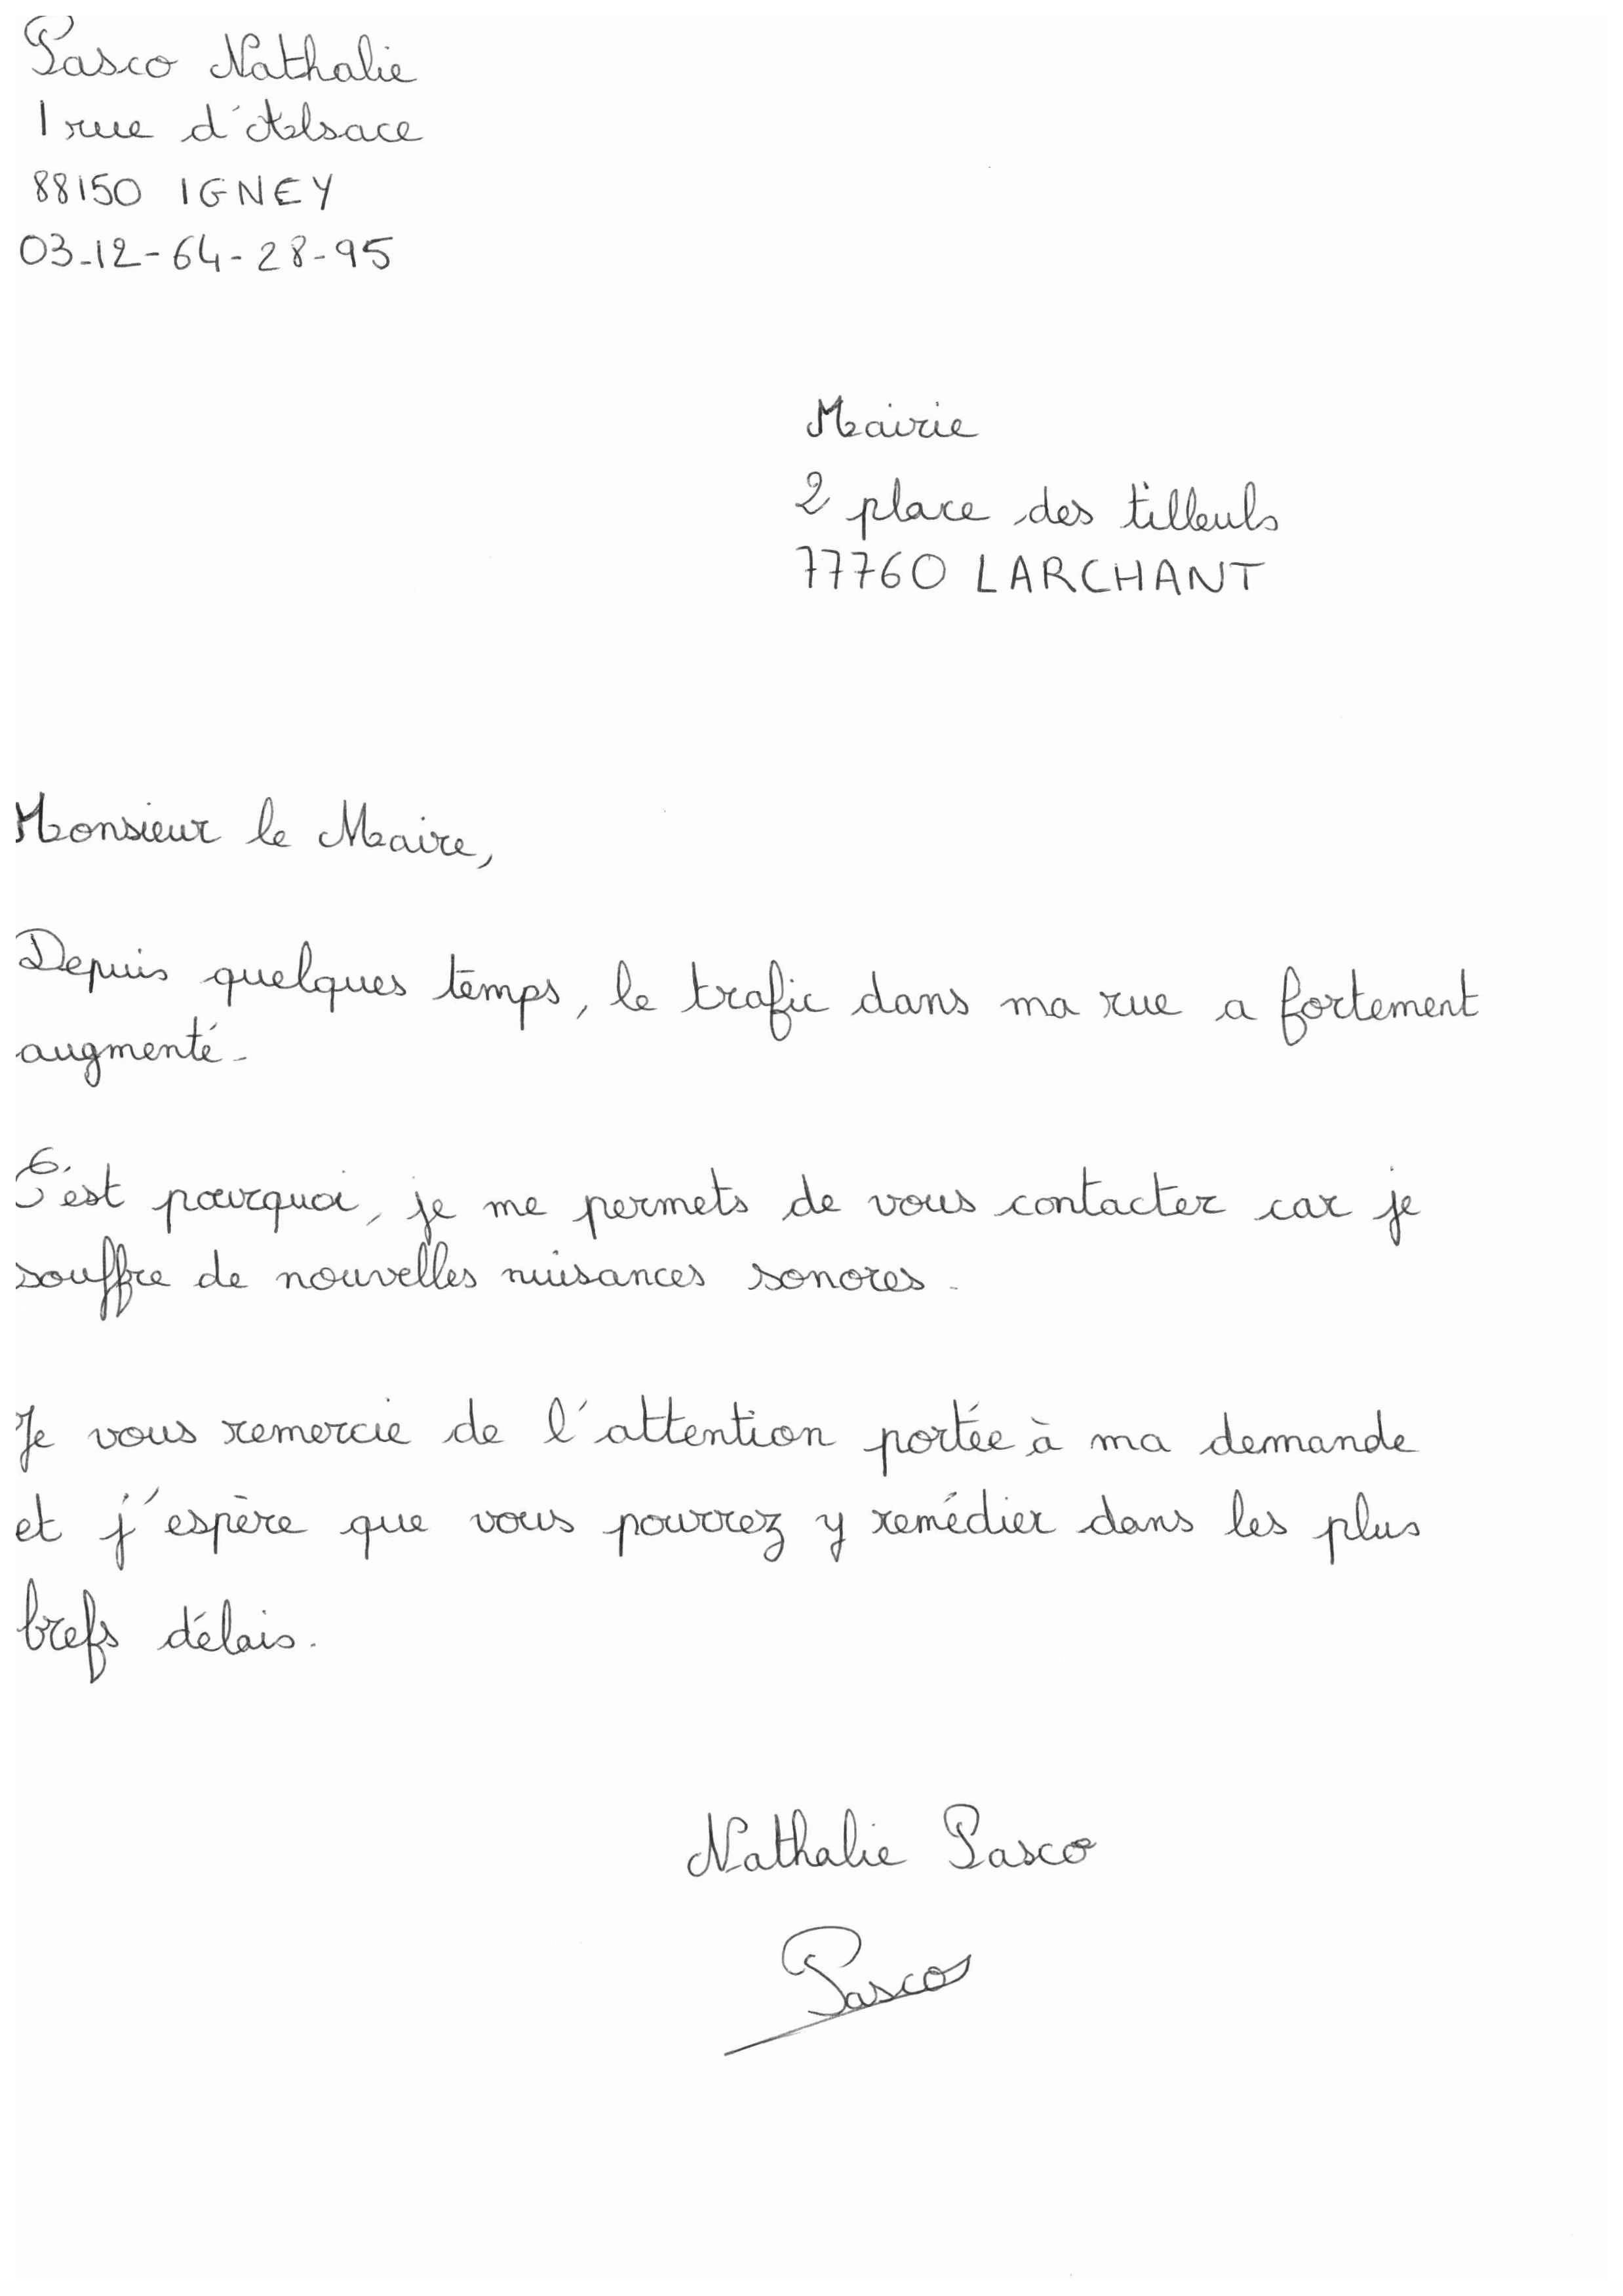 Pasco Nathalie
1 rue d'Alsace
88150 IGNEY
03-12-64-28-95
Mairie
2 place des tilleuls
77760 LARCHANT
Monsieur le Maire,
Depuis quelques temps, le trafic dans ma rue a fortement
augmenté.
C'est pourquoi, je me permets de vous contacter car je
souffre de nouvelles nuisances sonores.
Je vous remercie de l'attention portée à ma demande
et j'espère que vous pourrez y remédier dans les plus
brefs délais.
Nathalie Pasco
Pasco